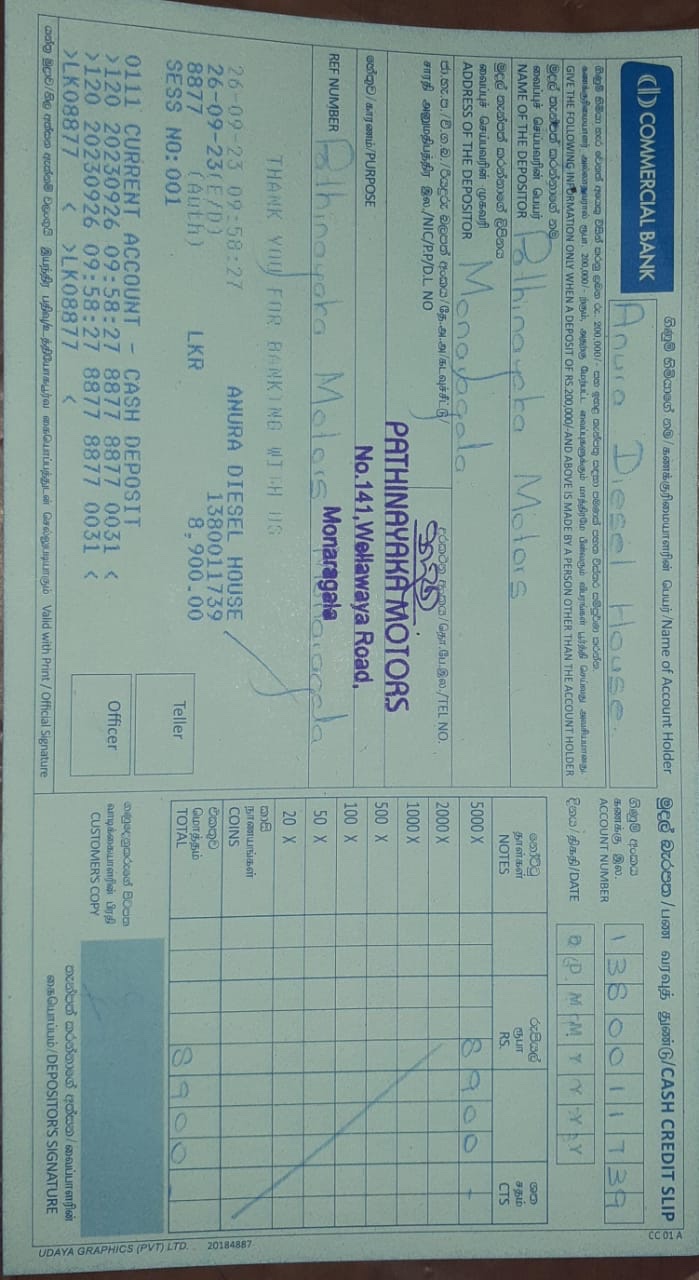 COMMERCIAL BANK
ගිණුම් හිමියාගේ නම/கணக்குரிமையாளரின் பெயர்/Name of Account Holder
Anura Diesel House.
GIVE THE FOLLOWING INFORMATION ONLY WHEN A DEPOSIT OF RS.200,000/- AND ABOVE IS MADE BY A PERSON OTHER THAN THE ACCOUNT HOLDER
මුදල් තැන්පත් කරන්නාගේ නම
வைப்புச் செய்பவரின் பெயர்
NAME OF THE DEPOSITOR
Pathinayaka Motors
මුදල් තැන්පත් කරන්නාගේ ලිපිනය
வைப்புச் செய்பவரின் முகவரி
ADDRESS OF THE DEPOSITOR
Monaragala
சாரதி அனுமதிப்பத்திர இல./NIC/P.P/D.L NO
දුරකථන අංකය/தொ.பே.இல./TEL NO.
හේතුව/காரணம்/PURPOSE
PATHINAYAKA MOTORS
No.141, Wellawaya Road,
Monaragala
REF NUMBER
Pathinayaka Motors
THANK YOU FOR BANKING WITH US
26-09-23 09:58:27 ANURA DIESEL HOUSE
26-09-23(E/D) 1380011739
8877 (Auth) LKR 8,900.00
SESS NO:001
0111 CURRENT ACCOUNT - CASH DEPOSIT
>120 20230926 09:58:27 8877 8877 0031 <
>120 20230926 09:58:27 8877 8877 0031 <
>LK08877 < >LK08877 <
Teller
Officer
Valid with Print / Official Signature
මුදල් බැරපත/பண வரவுத் துண்டு/CASH CREDIT SLIP
CC 01 A
ගිණුම් අංකය
கணக்கு இல.
ACCOUNT NUMBER
1380011739
දිනය/திகதி/DATE
D D M M Y Y Y Y
නෝට්ටු
தாள்கள்
NOTES
රුපියල්
ரூபா
RS.
ශත
சதம்
CTS
5000 X 8900 -
2000 X
1000 X
500 X
100 X
50 X
20 X
කාසි
நாணயங்கள்
COINS
එකතුව
மொத்தம்
TOTAL
8900 -
ගනුදෙනුකරුගේ පිටපත
வாடிக்கையாளரின் பிரதி
CUSTOMER'S COPY
තැන්පත් කරන්නාගේ අත්සන/வைப்பாளரின்
கையொப்பம்/DEPOSITOR'S SIGNATURE
UDAYA GRAPHICS (PVT) LTD. 20184887